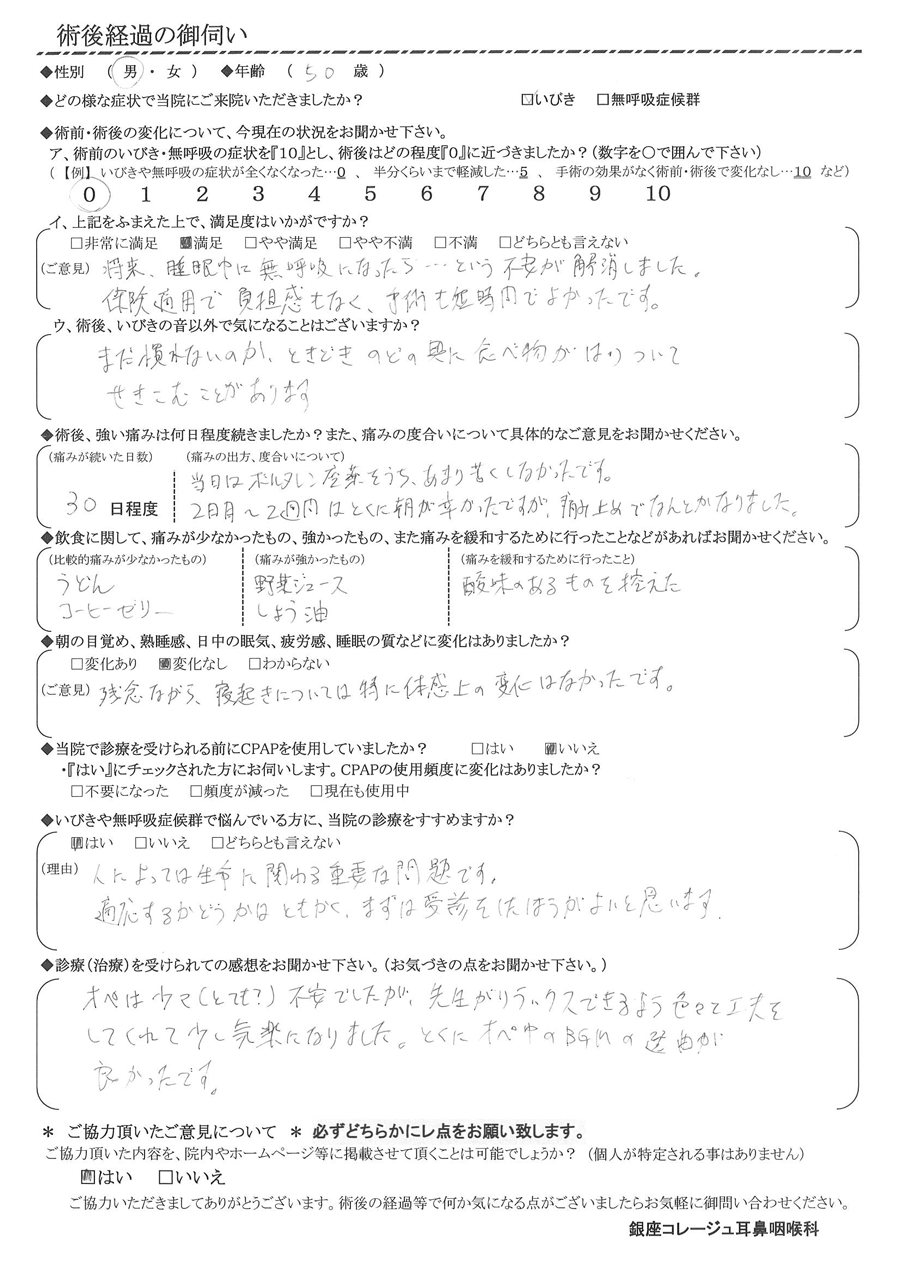 術後経過の御伺い
◆性別 ( 男 ・ 女 ) ◆年齢 ( 50 歳 )
◆どの様な症状で当院にご来院いただきましたか? ☑いびき □無呼吸症候群
◆術前・術後の変化について、今現在の状況をお聞かせ下さい。
ア、術前のいびき・無呼吸の症状を『10』とし、術後はどの程度『0』に近づきましたか?(数字を〇で囲んで下さい)
(【例】いびきや無呼吸の症状が全くなくなった…0 、 半分くらいまで軽減した…5 、 手術の効果がなく術前・術後で変化なし…10 など)
0 1 2 3 4 5 6 7 8 9 10
イ、上記をふまえた上で、満足度はいかがですか?
□非常に満足 ■満足 □やや満足 □やや不満 □不満 □どちらとも言えない
(ご意見) 将来、睡眠中に無呼吸になったら…という不安が解消しました。
保険適用で負担感もなく、手術も短時間でよかったです。
ウ、術後、いびきの音以外で気になることはございますか?
まだ慣れないのか、ときどきのどの奥に食べ物がはりついて
せきこむことがあります
◆術後、強い痛みは何日程度続きましたか?また、痛みの度合いについて具体的なご意見をお聞かせください。
(痛みが続いた日数) (痛みの出方、度合いについて)
当日はボルタレン座薬をうち、あまり苦しくなかったです。
30 日程度 2日目〜2週間はとくに朝が辛かったですが、痛み止めでなんとかなりました。
◆飲食に関して、痛みが少なかったもの、強かったもの、また痛みを緩和するために行ったことなどがあればお聞かせください。
(比較的痛みが少なかったもの) (痛みが強かったもの) (痛みを緩和するために行ったこと)
うどん 野菜ジュース 酸味のあるものを控えた
コーヒーゼリー しょう油
◆朝の目覚め、熟睡感、日中の眠気、疲労感、睡眠の質などに変化はありましたか?
□変化あり ■変化なし □わからない
(ご意見) 残念ながら、寝起きについては特に体感上の変化はなかったです。
◆当院で診療を受けられる前にCPAPを使用していましたか? □はい ■いいえ
・『はい』にチェックされた方にお伺いします。CPAPの使用頻度に変化はありましたか?
□不要になった □頻度が減った □現在も使用中
◆いびきや無呼吸症候群で悩んでいる方に、当院の診療をすすめますか?
■はい □いいえ □どちらとも言えない
(理由) 人によっては生命に関わる重要な問題です。
適応するかどうかはともかく、まずは受診をしたほうがよいと思います.
◆診療(治療)を受けられての感想をお聞かせ下さい。(お気づきの点をお聞かせ下さい。)
オペは少々(とても?)不安でしたが、先生がリラックスできるよう色々と工夫を
してくれて少し気楽になりました。とくにオペ中のBGMの選曲が
良かったです。
＊ ご協力頂いたご意見について ＊ 必ずどちらかにレ点をお願い致します。
ご協力頂いた内容を、院内やホームページ等に掲載させて頂くことは可能でしょうか? (個人が特定される事はありません)
■はい □いいえ
ご協力いただきましてありがとうございます。術後の経過等で何か気になる点がございましたらお気軽に御問い合わせください。
銀座コレージュ耳鼻咽喉科